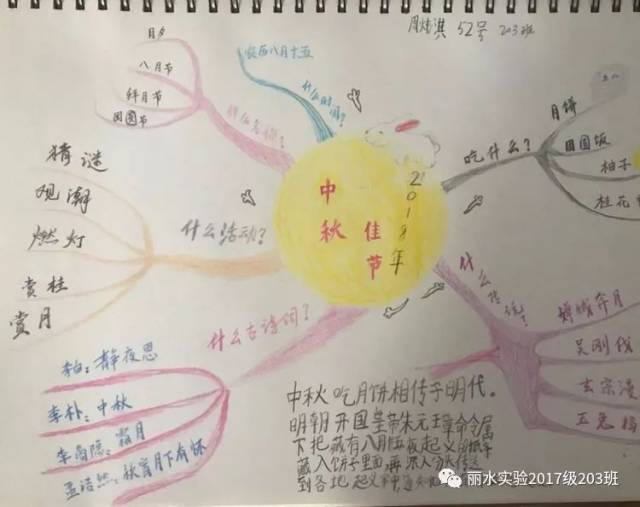 周炜淇 52号 203班
月夕
八月节
拜月节
团圆节
什么名称?
农历八月十五
什么时间?
吃什么?
月饼
团圆饭
柚子
桂花
中秋
佳节
2018年
猜谜
观潮
燃灯
赏桂
赏月
什么活动?
什么古诗词?
李白:静夜思
李朴:中秋
李商隐:霜月
孟浩然:秋宵月下有怀
什么传统?
嫦娥奔月
吴刚伐
玄宗漫
玉兔捣
中秋吃月饼相传于明代。
明朝开国皇帝朱元璋命令属
下把藏有八月十五夜起义的纸条
藏入饼子里面再派人分头传送
到各地起义军中
丽水实验2017级203班